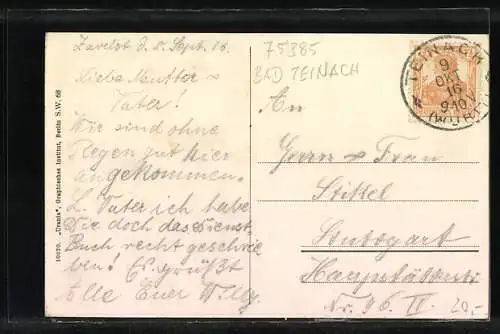 Zavelst d. 8. Sept. 16.
Liebe Mutter &
Vater!
Wir sind ohne
Regen gut hier
angekommen.
L. Vater ich habe
Dir doch das Dienst-
Buch recht geschrie-
ben! Es grüßt
Alle Euer Willy.
75385
BAD TEINACH
An
Herrn & Frau
Stuttgart
Hauptstätterstr.
Nr. 96 IV
20,-
TEINACH
9
OKT
16
9-10V
(WÜRTT)
10070. „Urania", Graphisches Institut, Berlin S.W. 68